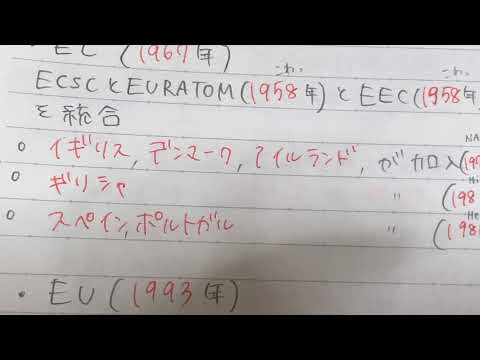 ・EC (1967年)
こわ こわ
ECSCとEURATOM(1958年)とEEC(1958年
を統合
○ イギリス, デンマーク, アイルランド, が加入(19
○ ギリシャ 〃 (198
○ スペイン, ポルトガル 〃 (198
・EU (1993年)